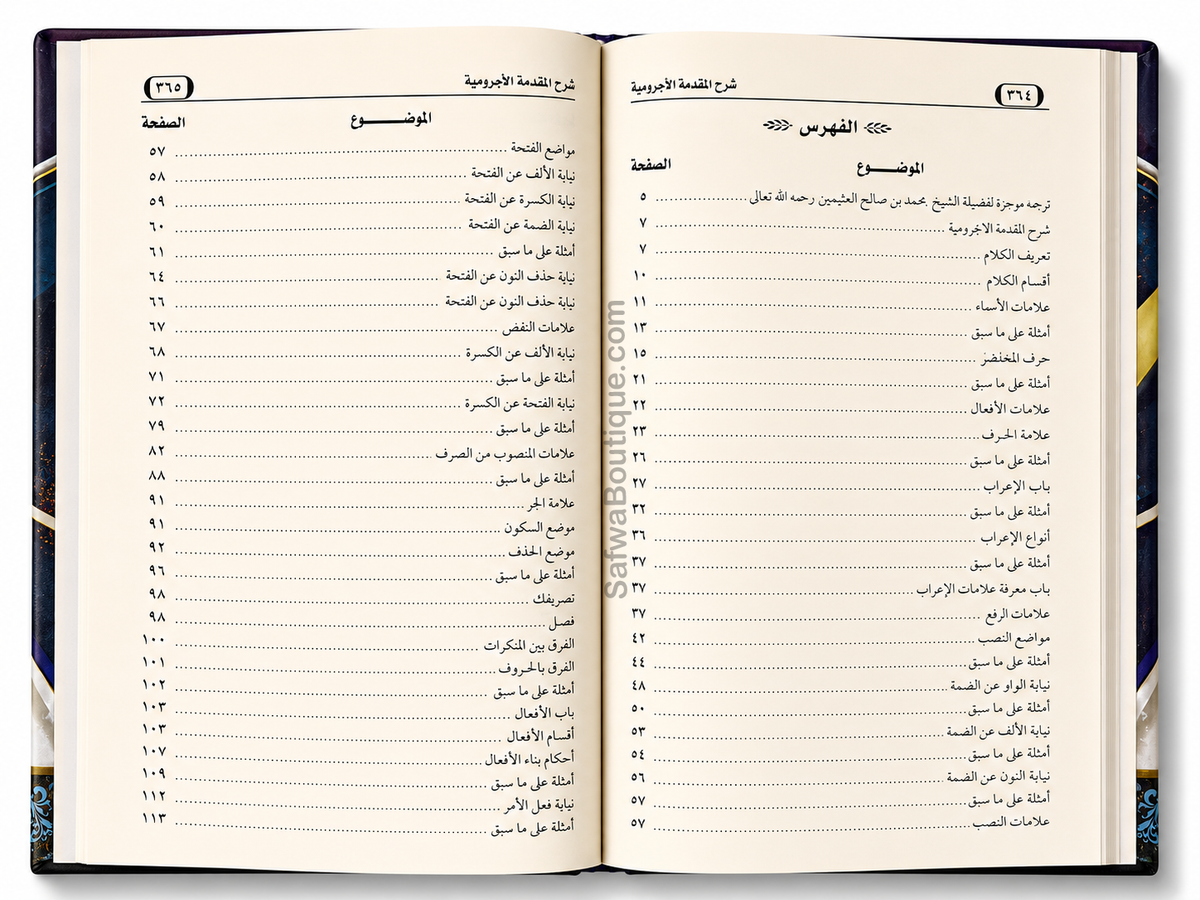 ٣٦٤ شرح المقدمة الأجرومية
الفهرس
الموضـــــوع الصفحة
ترجمه موجزة لفضيلة الشيخ محمد بن صالح العثيمين رحمه الله تعالى ٥
شرح المقدمة الاجرومية ٧
تعريف الكلام ٧
أقسام الكلام ١٠
علامات الأسماء ١١
أمثلة على ما سبق ١٣
حرف المخنضر ١٥
أمثلة على ما سبق ٢١
علامات الأفعال ٢٢
علامة الحرف ٢٣
أمثلة على ما سبق ٢٦
باب الإعراب ٢٧
أمثلة على ما سبق ٣٢
أنواع الإعراب ٣٦
أمثلة على ما سبق ٣٧
باب معرفة علامات الإعراب ٣٧
علامات الرفع ٣٧
مواضع النصب ٤٢
أمثلة على ما سبق ٤٤
نيابة الواو عن الضمة ٤٨
أمثلة على ما سبق ٥٠
نيابة الألف عن الضمة ٥٣
أمثلة على ما سبق ٥٤
نيابة النون عن الضمة ٥٦
أمثلة على ما سبق ٥٧
علامات النصب ٥٧
شرح المقدمة الأجرومية ٣٦٥
الموضـــــوع الصفحة
مواضع الفتحة ٥٧
نيابة الألف عن الفتحة ٥٨
نيابة الكسرة عن الفتحة ٥٩
نيابة الضمة عن الفتحة ٦٠
أمثلة على ما سبق ٦١
نيابة حذف النون عن الفتحة ٦٤
نيابة حذف النون عن الفتحة ٦٦
علامات النفض ٦٧
نيابة الألف عن الكسرة ٦٨
أمثلة على ما سبق ٧١
نيابة الفتحة عن الكسرة ٧٢
أمثلة على ما سبق ٧٩
علامات المنصوب من الصرف ٨٢
أمثلة على ما سبق ٨٨
علامة الجر ٩١
موضع السكون ٩١
موضع الحذف ٩٢
أمثلة على ما سبق ٩٦
تصريفك ٩٨
فصل ٩٨
الفرق بين المنكرات ١٠٠
الفرق بالحروف ١٠١
أمثلة على ما سبق ١٠٢
باب الأفعال ١٠٣
أقسام الأفعال ١٠٣
أحكام بناء الأفعال ١٠٧
أمثلة على ما سبق ١٠٩
نيابة فعل الأمر ١١٢
أمثلة على ما سبق ١١٣
SafwaBoutique.com